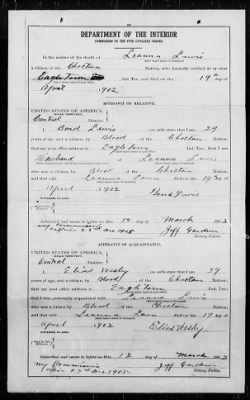 DEPARTMENT OF THE INTERIOR
COMMISSION TO THE FIVE CIVILIZED TRIBES.
In the matter of the death of Leanna Lewis
Choctaw Nation, who formerly resided at or near
Eagletown, Ind. Ter., and died on the 19th day of
April 1902
AFFIDAVIT OF RELATIVE.
UNITED STATES OF AMERICA,
Central District.
I, Lewis on oath state that I am 29
years of age and a citizen, by Blood of the Choctaw Nation;
that my post office address is Eagletown Ind. Ter.; that I
am Husband of Leanna Lewis
who was a citizen, by Blood of the Choctaw Nation;
and that said Leanna Lewis died on the 19 day
of April 1902
Subscribed and sworn to before me this 12 day of March 1903
My Commission
Jeff Gardner
Notary Public.
AFFIDAVIT OF ACQUAINTANCE.
UNITED STATES OF AMERICA,
Central District.
I, Elias Wesley, on oath state that I am 39
years of age, and a citizen by Blood of the Choctaw Nation;
that my post office address is Eagletown Ind. Ter.;
that I was personally acquainted with Leanna Lewis
who was a citizen, by Blood of the Choctaw Nation;
and that said Leanna Lewis died on the day
of April 1902
Elias Wesley
Subscribed and sworn to before me this 12 day of March 1903
My Commission
Jeff Gardner
Notary Public.